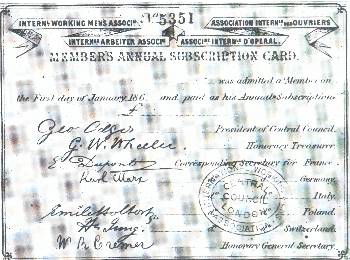 INTERNL WORKING MENS ASSOCIN
No 5351
ASSOCIATION INTERNLE DES OUVRIERS
INTERNLE ARBEITER ASSOCN
ASSOCNE INTERNLE D'OPERAI.
MEMBERS ANNUAL SUBSCRIPTION CARD.
was admitted a Member on
the First day of January 186 and paid as his Annual Subscription
Geo Odger President of Central Council.
G. W. Wheeler Honorary Treasurer.
E. Dupont Corresponding Secretary for France
Karl Marx Germany,
Italy,
Poland,
H. Jung Switzerland.
W R Cremer Honorary General Secretary.
CENTRAL
COUNCIL
LONDON